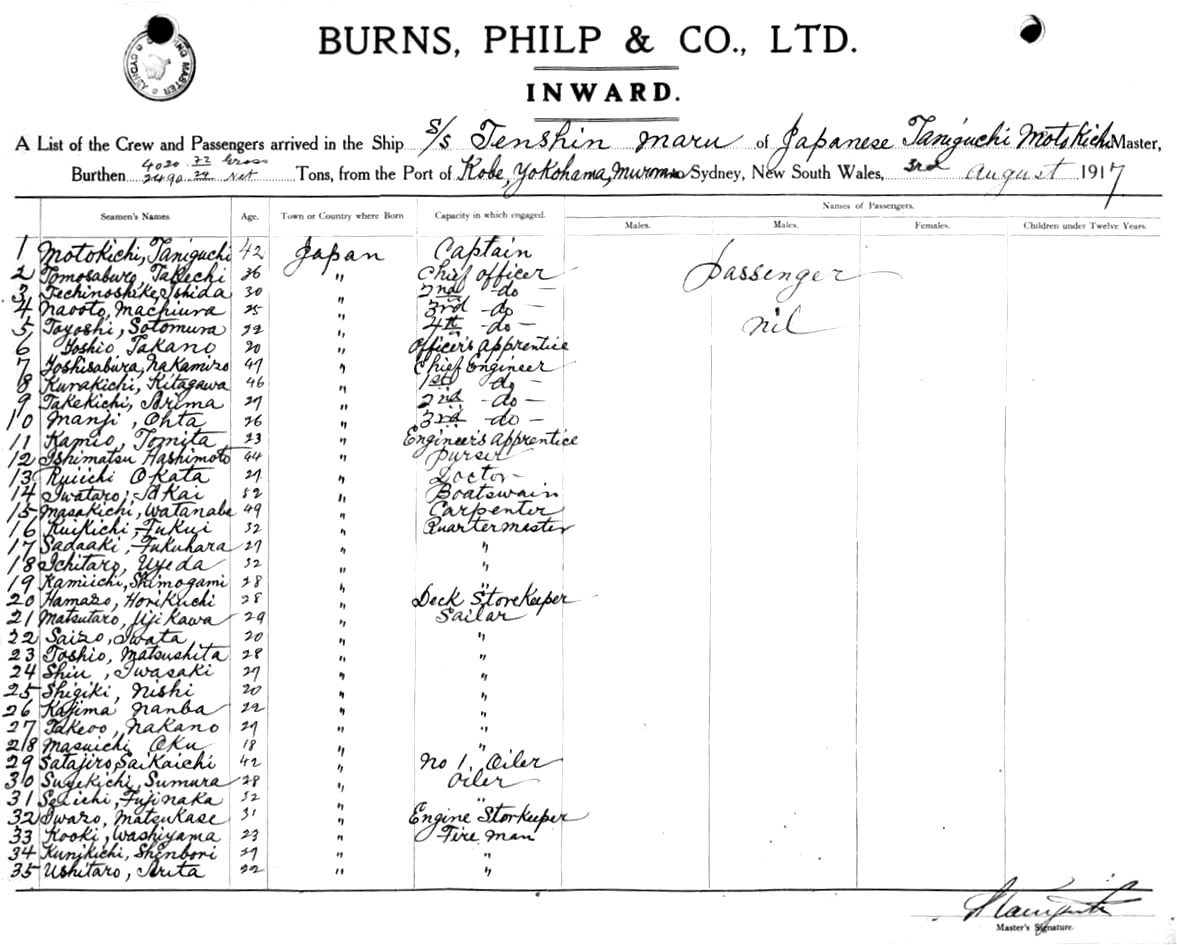 BURNS, PHILP & CO., LTD.
INWARD.
A List of the Crew and Passengers arrived in the Ship S/S Tenshin Maru of Japanese Taniguchi Motokichi Master,
Burthen 4020.72 Gross 2490.29 Net Tons, from the Port of Kobe, Yokohama, Sydney, New South Wales, 3rd August 1917
Seamen's Names. Age. Town or Country where Born Capacity in which engaged. Names of Passengers.
Males. Males. Females. Children under Twelve Years.
1 Motokichi, Taniguchi 42 Japan Captain
passenger
nil
2 Tomosaburo, Takechi 36 " Chief officer
3 Techinoshike, Ishida 30 " 2nd -do-
4 Naooto, Machiura 25 " 3rd -do-
5 Toyoshi, Sotomura 22 " 4th -do-
6 Yoshio Takano 20 " Officer's Apprentice
7 Yoshisabura, Nakamizo 47 " Chief Engineer
8 Kurakichi, Kitagawa 46 " 1st do -
9 Takekichi, Arima 27 " 2nd -do-
10 Manji, Ohta 26 " 3rd -do-
11 Kamio, Tomita 23 " Engineer's Apprentice
12 Ishimatsu Hashimoto 44 " Purser
13 Ryuichi Okata 27 " Doctor
14 Iwataro, Sakai 52 " Boatswain
15 Masakichi, Watanabe 49 " Carpenter
16 Kuikichi, Fukui 32 " Quartermaster
17 Sadaaki, Fukuhara 27 " "
18 Ichitaro, Uyeda 32 " "
19 Kamiichi, Shimogami 28 " "
20 Hamazo, Horikuchi 28 " Deck Storekeeper
21 Matsutaro, Ujikawa 29 " Sailar
22 Saizo, Iwata 20 " "
23 Toshio, Matsushita 28 " "
24 Shiu, Iwasaki 27 " "
25 Shigiki, Nishi 20 " "
26 Kajima Nanba 22 " "
27 Takeoo, Nakano 29 " "
28 Masuichi Oku 18 " "
29 Satajiro, Saikaichi 42 " No 1. Oiler
30 Sugekichi, Sumura 28 " Oiler
31 Seiichi, Fujinaka 32 " "
32 Iwazo, Matsukase 31 " Engine Storkeeper
33 Kooki, Washiyama 23 " Fire man
34 Kunikichi, Shinbori 27 " "
35 Ushitaro, Arita 22 " "
Master's Signature.